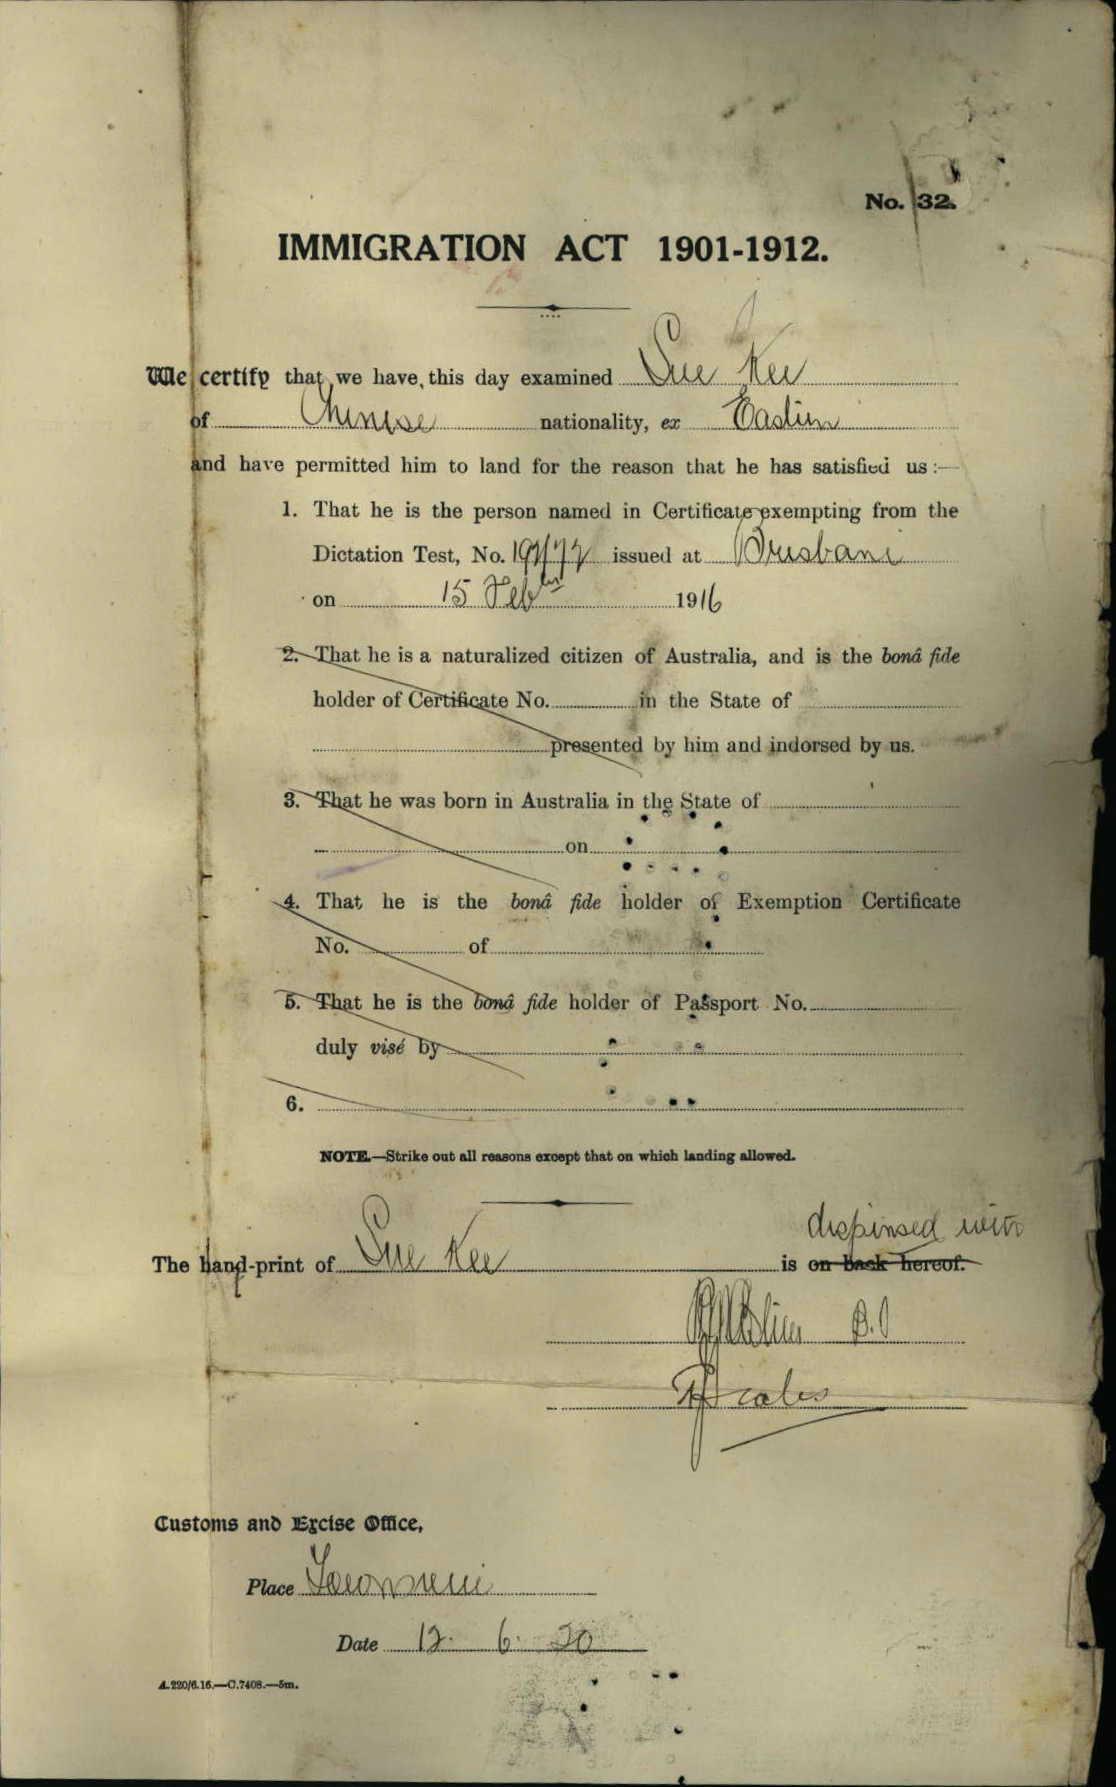 No. 32.
IMMIGRATION ACT 1901-1912.
We certify that we have this day examined Sue Kee
of Chinese nationality, ex Eastern
and have permitted him to land for the reason that he has satisfied us:—
1. That he is the person named in Certificate exempting from the
Dictation Test, No. issued at Brisbane
on 15 Feb 1916
2. That he is a naturalized citizen of Australia, and is the bonâ fide
holder of Certificate No. in the State of
presented by him and indorsed by us.
3. That he was born in Australia in the State of
on
4. That he is the bonâ fide holder of Exemption Certificate
No. of
5. That he is the bonâ fide holder of Passport No.
duly visé by
6.
NOTE.—Strike out all reasons except that on which landing allowed.
dispensed with
The hand-print of Sue Kee is on back hereof.
Customs and Excise Office,
Place Townsville
Date 12. 6. 20
A.220/6.16.—C.7408.—5m.